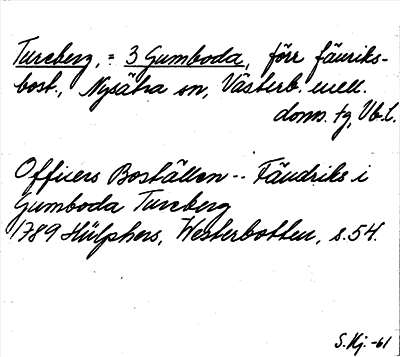 Tureberg, = 3 Gumboda, förr fänriks-
bost., Nysätra sn, Västerb. mell.
doms. tg, Vb.l.
Officers Boställen -- Fändriks i
Gumboda Tureberg
1789 Hülphers, Westerbotten, s. 54.
S. Hj. -61